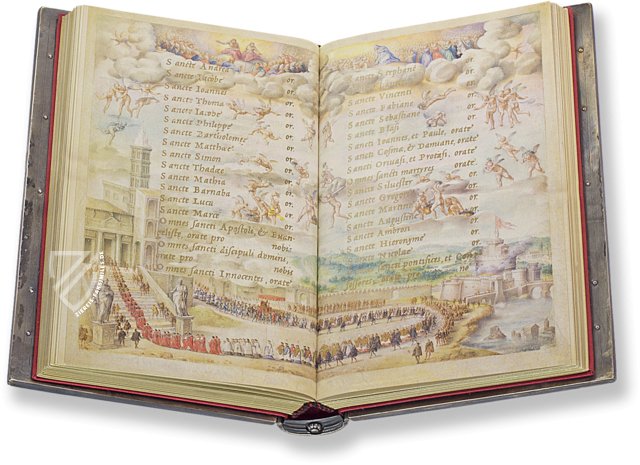 Sancte Andrea or.
Sancte Iacobe or.
Sancte Ioannes or.
Sancte Thoma or.
Sancte Iacobe or.
Sancte Philippe or.
Sancte Bartholomee or.
Sancte Matthaee or.
Sancte Simon or.
Sancte Thadaee or.
Sancte Mathia or.
Sancte Barnaba or.
Sancte Luca or.
Sancte Marce or.
Omnes sancti Apostoli, & Euan
gelistę, orate pro nobis
Omnes sancti discipuli domini,
orate pro nobis
Omnes sancti Innocentes, orate
Sancte Stephane or.
Sancte Vincenti or.
Sancte Fabiane or.
Sancte Sebastiane or.
Sancte Blasi or.
Sancti Ioannes, et Paule, orate
Sancti Cosma, & Damiane, orate
Sancti Geruasi, et Protasi, orate
Omnes sancti martyres
Sancte Siluester or.
Sancte Gregori
Sancte Martine
Sancte Augustine
Sancte Ambrosi
Sancte Hieronyme or.
Sancte Nicolae
Omnes sancti pontifices, et Confe
ZIEREIS FAKSIMILES